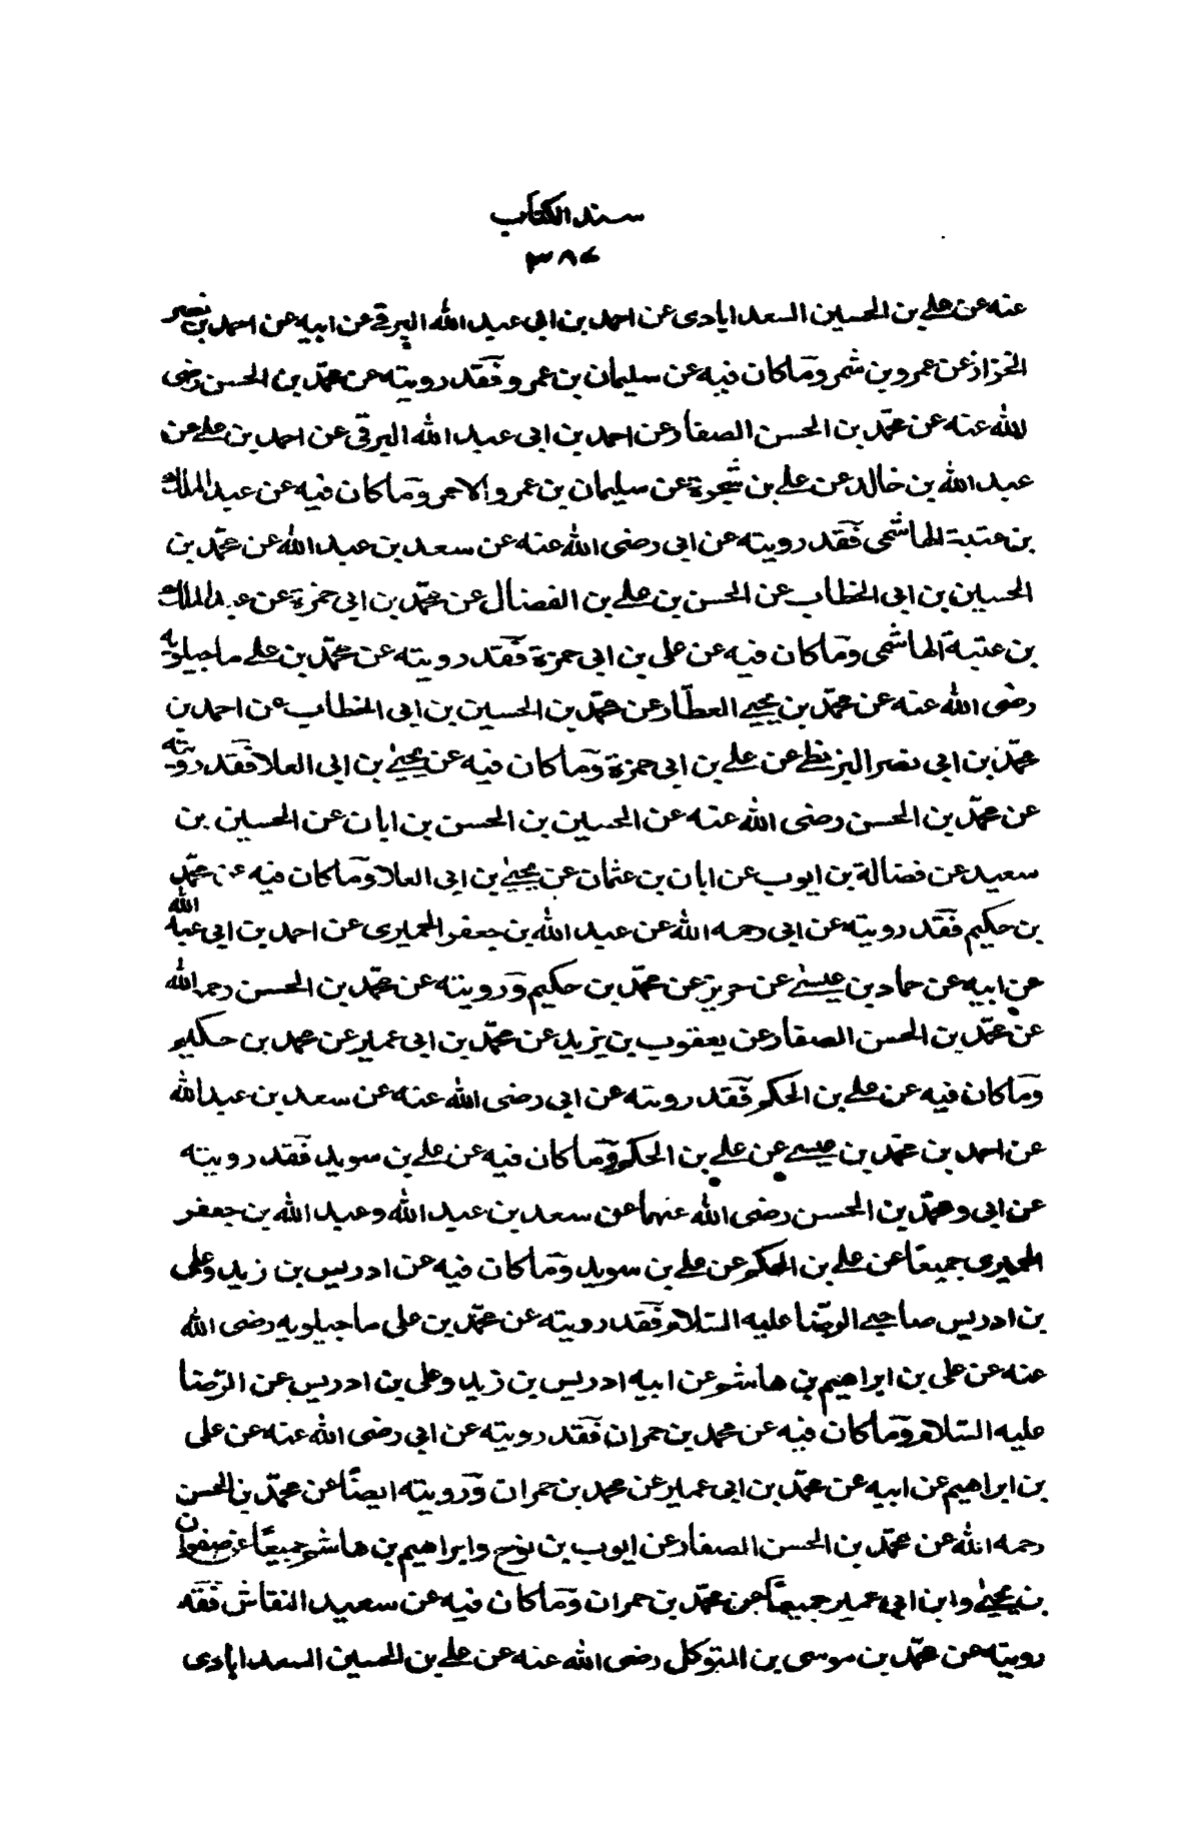 سند الكتاب
٣٨٤
عنه عن علي بن الحسين السعدابادى عن احمد بن ابى عبد الله البرقى عن ابيه عن احمد بن نصر
الخزاز عن عمرو بن شمر وما كان فيه عن سليمان بن عمرو فقد رويته عن محمّد بن الحسن رضى
الله عنه عن محمّد بن الحسن الصفار عن احمد بن ابى عبد الله البرقى عن احمد بن على عن
عبد الله بن خالد عن على بن شجرة عن سليمان بن عمرو الاحمر وما كان فيه عن عبد الملك
بن عتبة الهاشمى فقد رويته عن ابى رضى الله عنه عن سعد بن عبد الله عن محمّد بن
الحسين بن ابى الخطاب عن الحسن بن على بن الفضال عن محمّد بن ابى حمزة عن عبد الملك
بن عتبة الهاشمى وما كان فيه عن على بن ابى حمزة فقد رويته عن محمّد بن على ماجيلويه
رضى الله عنه عن محمّد بن يحيى العطّار عن محمّد بن الحسين بن ابى الخطاب عن احمد بن
محمّد بن ابى نصر البزنطى عن على بن ابى حمزة وما كان فيه عن يحيى بن ابى العلا فقد رويته
عن محمّد بن الحسن رضى الله عنه عن الحسين بن الحسن بن ابان عن الحسين بن
سعيد عن فضالة بن ايوب عن ابان بن عثمان عن يحيى بن ابى العلا وما كان فيه عن محمّد
بن حكيم فقد رويته عن ابى رحمه الله عن عبد الله بن جعفر الحميرى عن احمد بن ابى عبد الله
عن ابيه عن حماد بن عيسى عن حريز عن محمّد بن حكيم ورويته عن محمّد بن الحسن رحمه الله
عن محمّد بن الحسن الصفار عن يعقوب بن يزيد عن محمّد بن ابى عمير عن محمد بن حكيم
وما كان فيه عن على بن الحكم فقد رويته عن ابى رضى الله عنه عن سعد بن عبد الله
عن احمد بن محمّد بن عيسى عن على بن الحكم وما كان فيه عن على بن سويد فقد رويته
عن ابى ومحمّد بن الحسن رضى الله عنهما عن سعد بن عبد الله وعبد الله بن جعفر
الحميرى جميعًا عن على بن الحكم عن على بن سويد وما كان فيه عن ادريس بن زيد وعلى
بن ادريس صاحبى الرضا عليه السّلام فقد رويته عن محمّد بن على ماجيلويه رضى الله
عنه عن على بن ابراهيم بن هاشم عن ابيه ادريس بن زيد وعلى بن ادريس عن الرّضا
عليه السّلام وما كان فيه عن محمد بن حمران فقد رويته عن ابى رضى الله عنه عن على
بن ابراهيم عن ابيه عن محمّد بن ابى عمير عن محمد بن حمران ورويته ايضًا عن محمّد بن الحسن
رحمه الله عن محمّد بن الحسن الصفار عن ايوب بن نوح وابراهيم بن هاشم جميعًا عن صفوان
بن يحيى وابن ابى عمير جميعًا عن محمّد بن حمران وما كان فيه عن سعيد النقاش فقد
رويته عن محمّد بن موسى بن المتوكل رضى الله عنه عن على بن الحسين السعدابادى